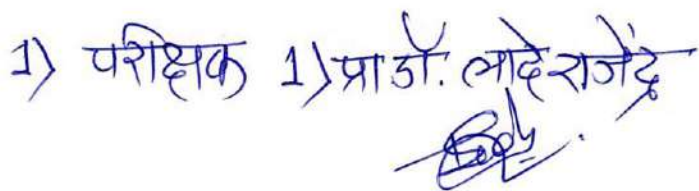 1) परीक्षक 1) प्रा डॉ. लादे राजेंद्र